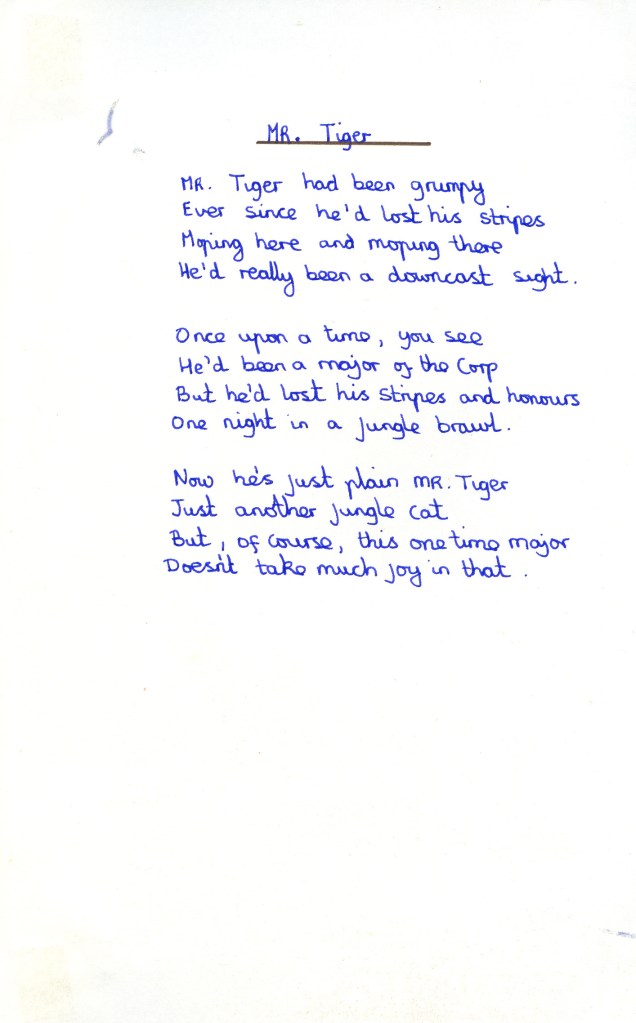 MR. Tiger
MR. Tiger had been grumpy
Ever since he'd lost his stripes
Moping here and moping there
He'd really been a downcast sight.
Once upon a time, you see
He'd been a major of the Corp
But he'd lost his stripes and honours
One night in a jungle brawl.
Now he's just plain MR. Tiger
Just another jungle cat
But, of course, this one time major
Doesn't take much joy in that.